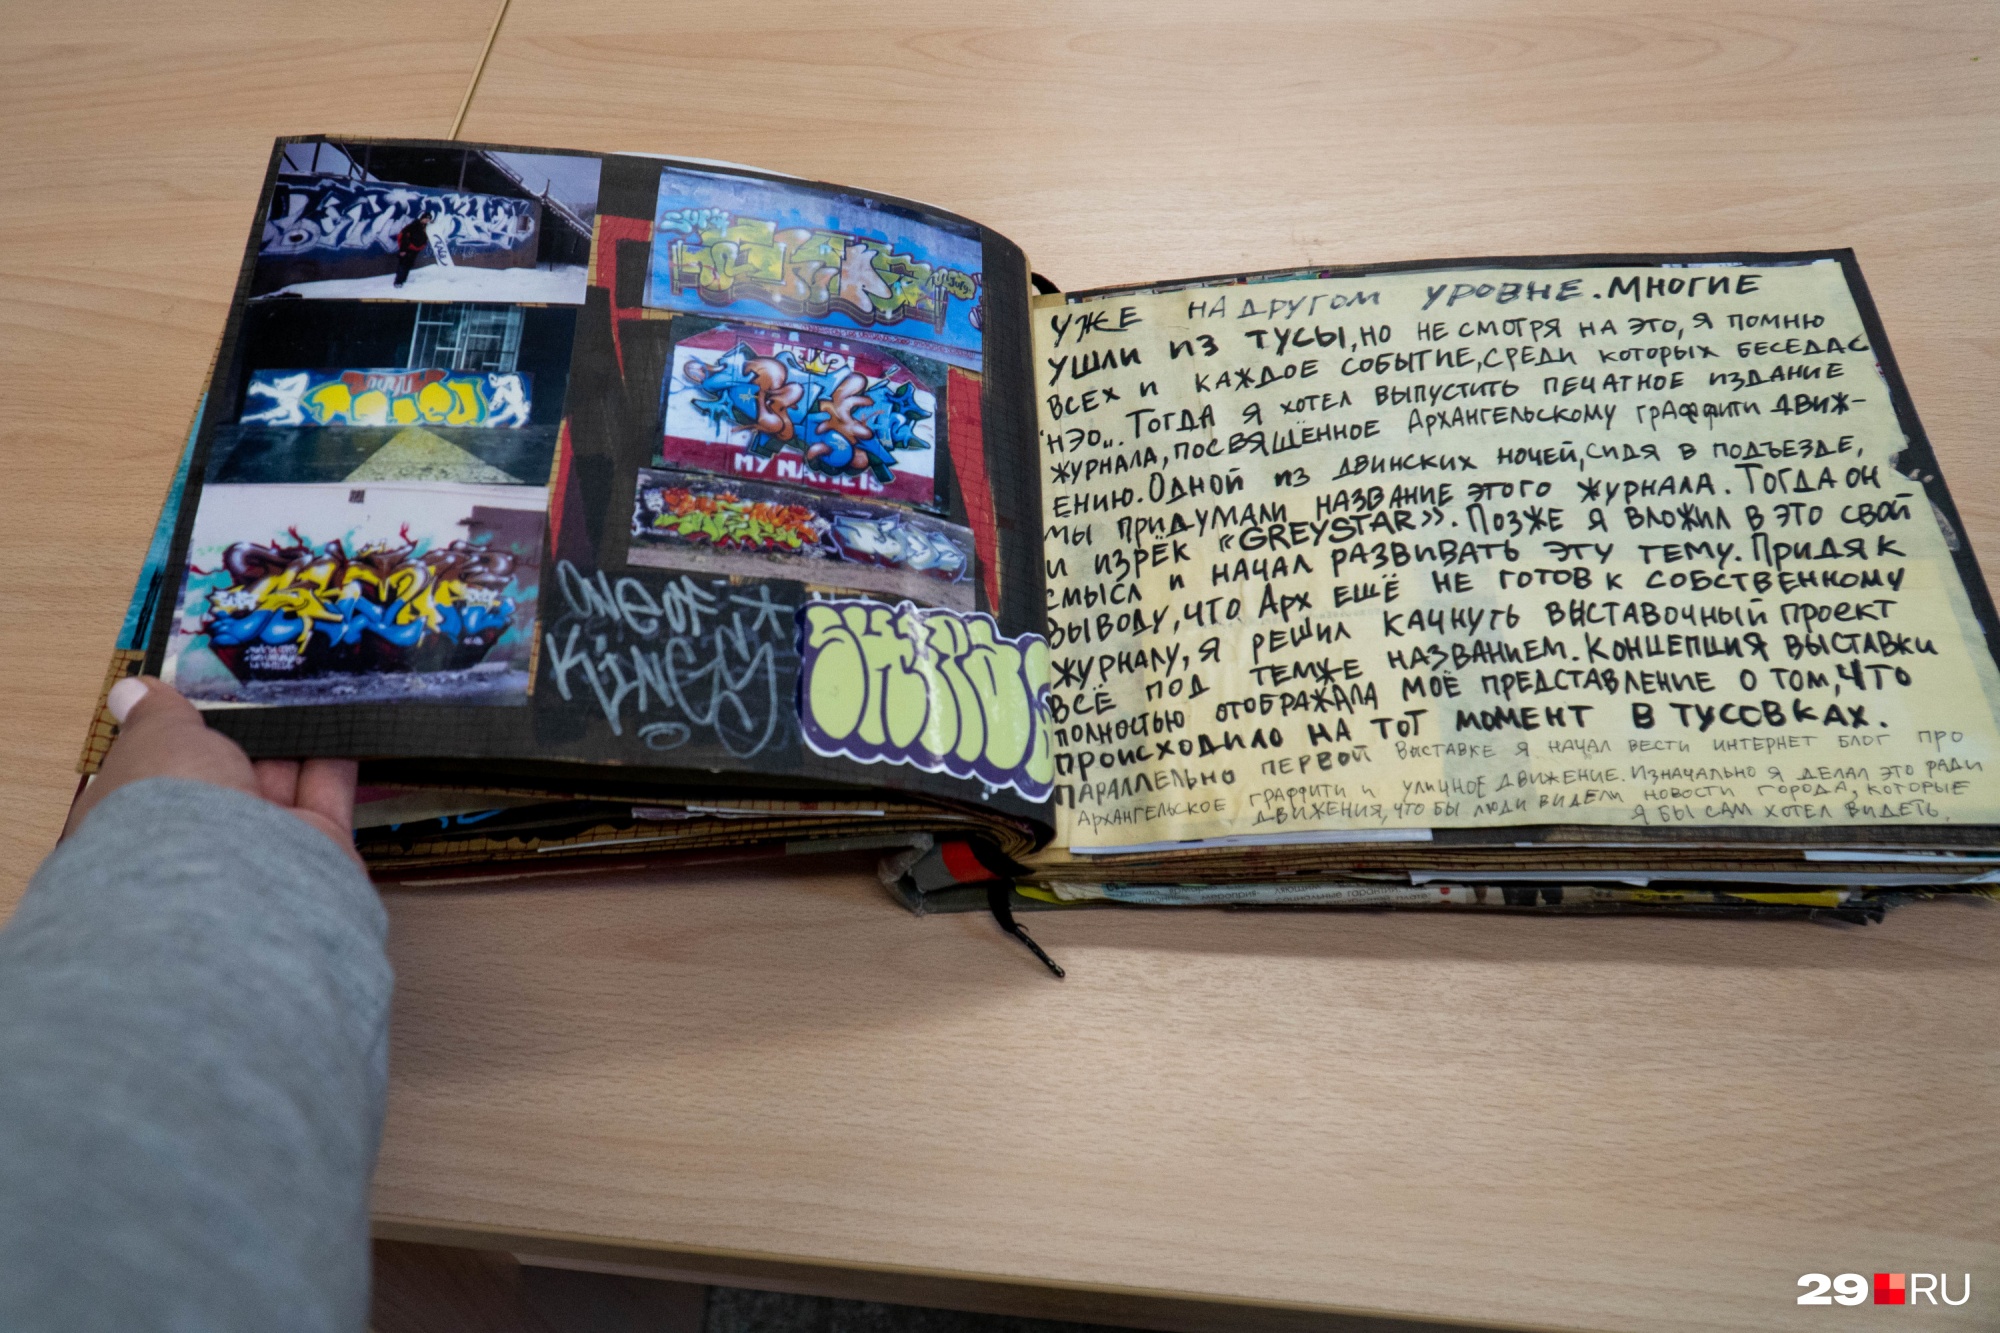 ONE OF
KINGS
MY NAME IS
УЖЕ НА ДРУГОМ УРОВНЕ. МНОГИЕ
УШЛИ ИЗ ТУСЫ, НО НЕ СМОТРЯ НА ЭТО, Я ПОМНЮ
ВСЕХ И КАЖДОЕ СОБЫТИЕ, СРЕДИ КОТОРЫХ БЕСЕДА С
"НЭО„. ТОГДА Я ХОТЕЛ ВЫПУСТИТЬ ПЕЧАТНОЕ ИЗДАНИЕ
ЖУРНАЛА, ПОСВЯЩЁННОЕ АРХАНГЕЛЬСКОМУ ГРАФФИТИ ДВИЖ-
ЕНИЮ. ОДНОЙ ИЗ ДВИНСКИХ НОЧЕЙ, СИДЯ В ПОДЪЕЗДЕ,
МЫ ПРИДУМАЛИ НАЗВАНИЕ ЭТОГО ЖУРНАЛА. ТОГДА ОН
И ИЗРЁК «GREYSTAR». ПОЗЖЕ Я ВЛОЖИЛ В ЭТО СВОЙ
СМЫСЛ И НАЧАЛ РАЗВИВАТЬ ЭТУ ТЕМУ. ПРИДЯ К
ВЫВОДУ, ЧТО АРХ ЕЩЁ НЕ ГОТОВ К СОБСТВЕННОМУ
ЖУРНАЛУ, Я РЕШИЛ КАЧНУТЬ ВЫСТАВОЧНЫЙ ПРОЕКТ
ВСЁ ПОД ТЕМ ЖЕ НАЗВАНИЕМ. КОНЦЕПЦИЯ ВЫСТАВКИ
ПОЛНОСТЬЮ ОТОБРАЖАЛА МОЁ ПРЕДСТАВЛЕНИЕ О ТОМ, ЧТО
ПРОИСХОДИЛО НА ТОТ МОМЕНТ В ТУСОВКАХ.
ПАРАЛЛЕЛЬНО ПЕРВОЙ ВЫСТАВКЕ Я НАЧАЛ ВЕСТИ ИНТЕРНЕТ БЛОГ ПРО
АРХАНГЕЛЬСКОЕ ГРАФФИТИ И УЛИЧНОЕ ДВИЖЕНИЕ. ИЗНАЧАЛЬНО Я ДЕЛАЛ ЭТО РАДИ
ДВИЖЕНИЯ, ЧТО БЫ ЛЮДИ ВИДЕЛИ НОВОСТИ ГОРОДА, КОТОРЫЕ
Я БЫ САМ ХОТЕЛ ВИДЕТЬ.
29 RU